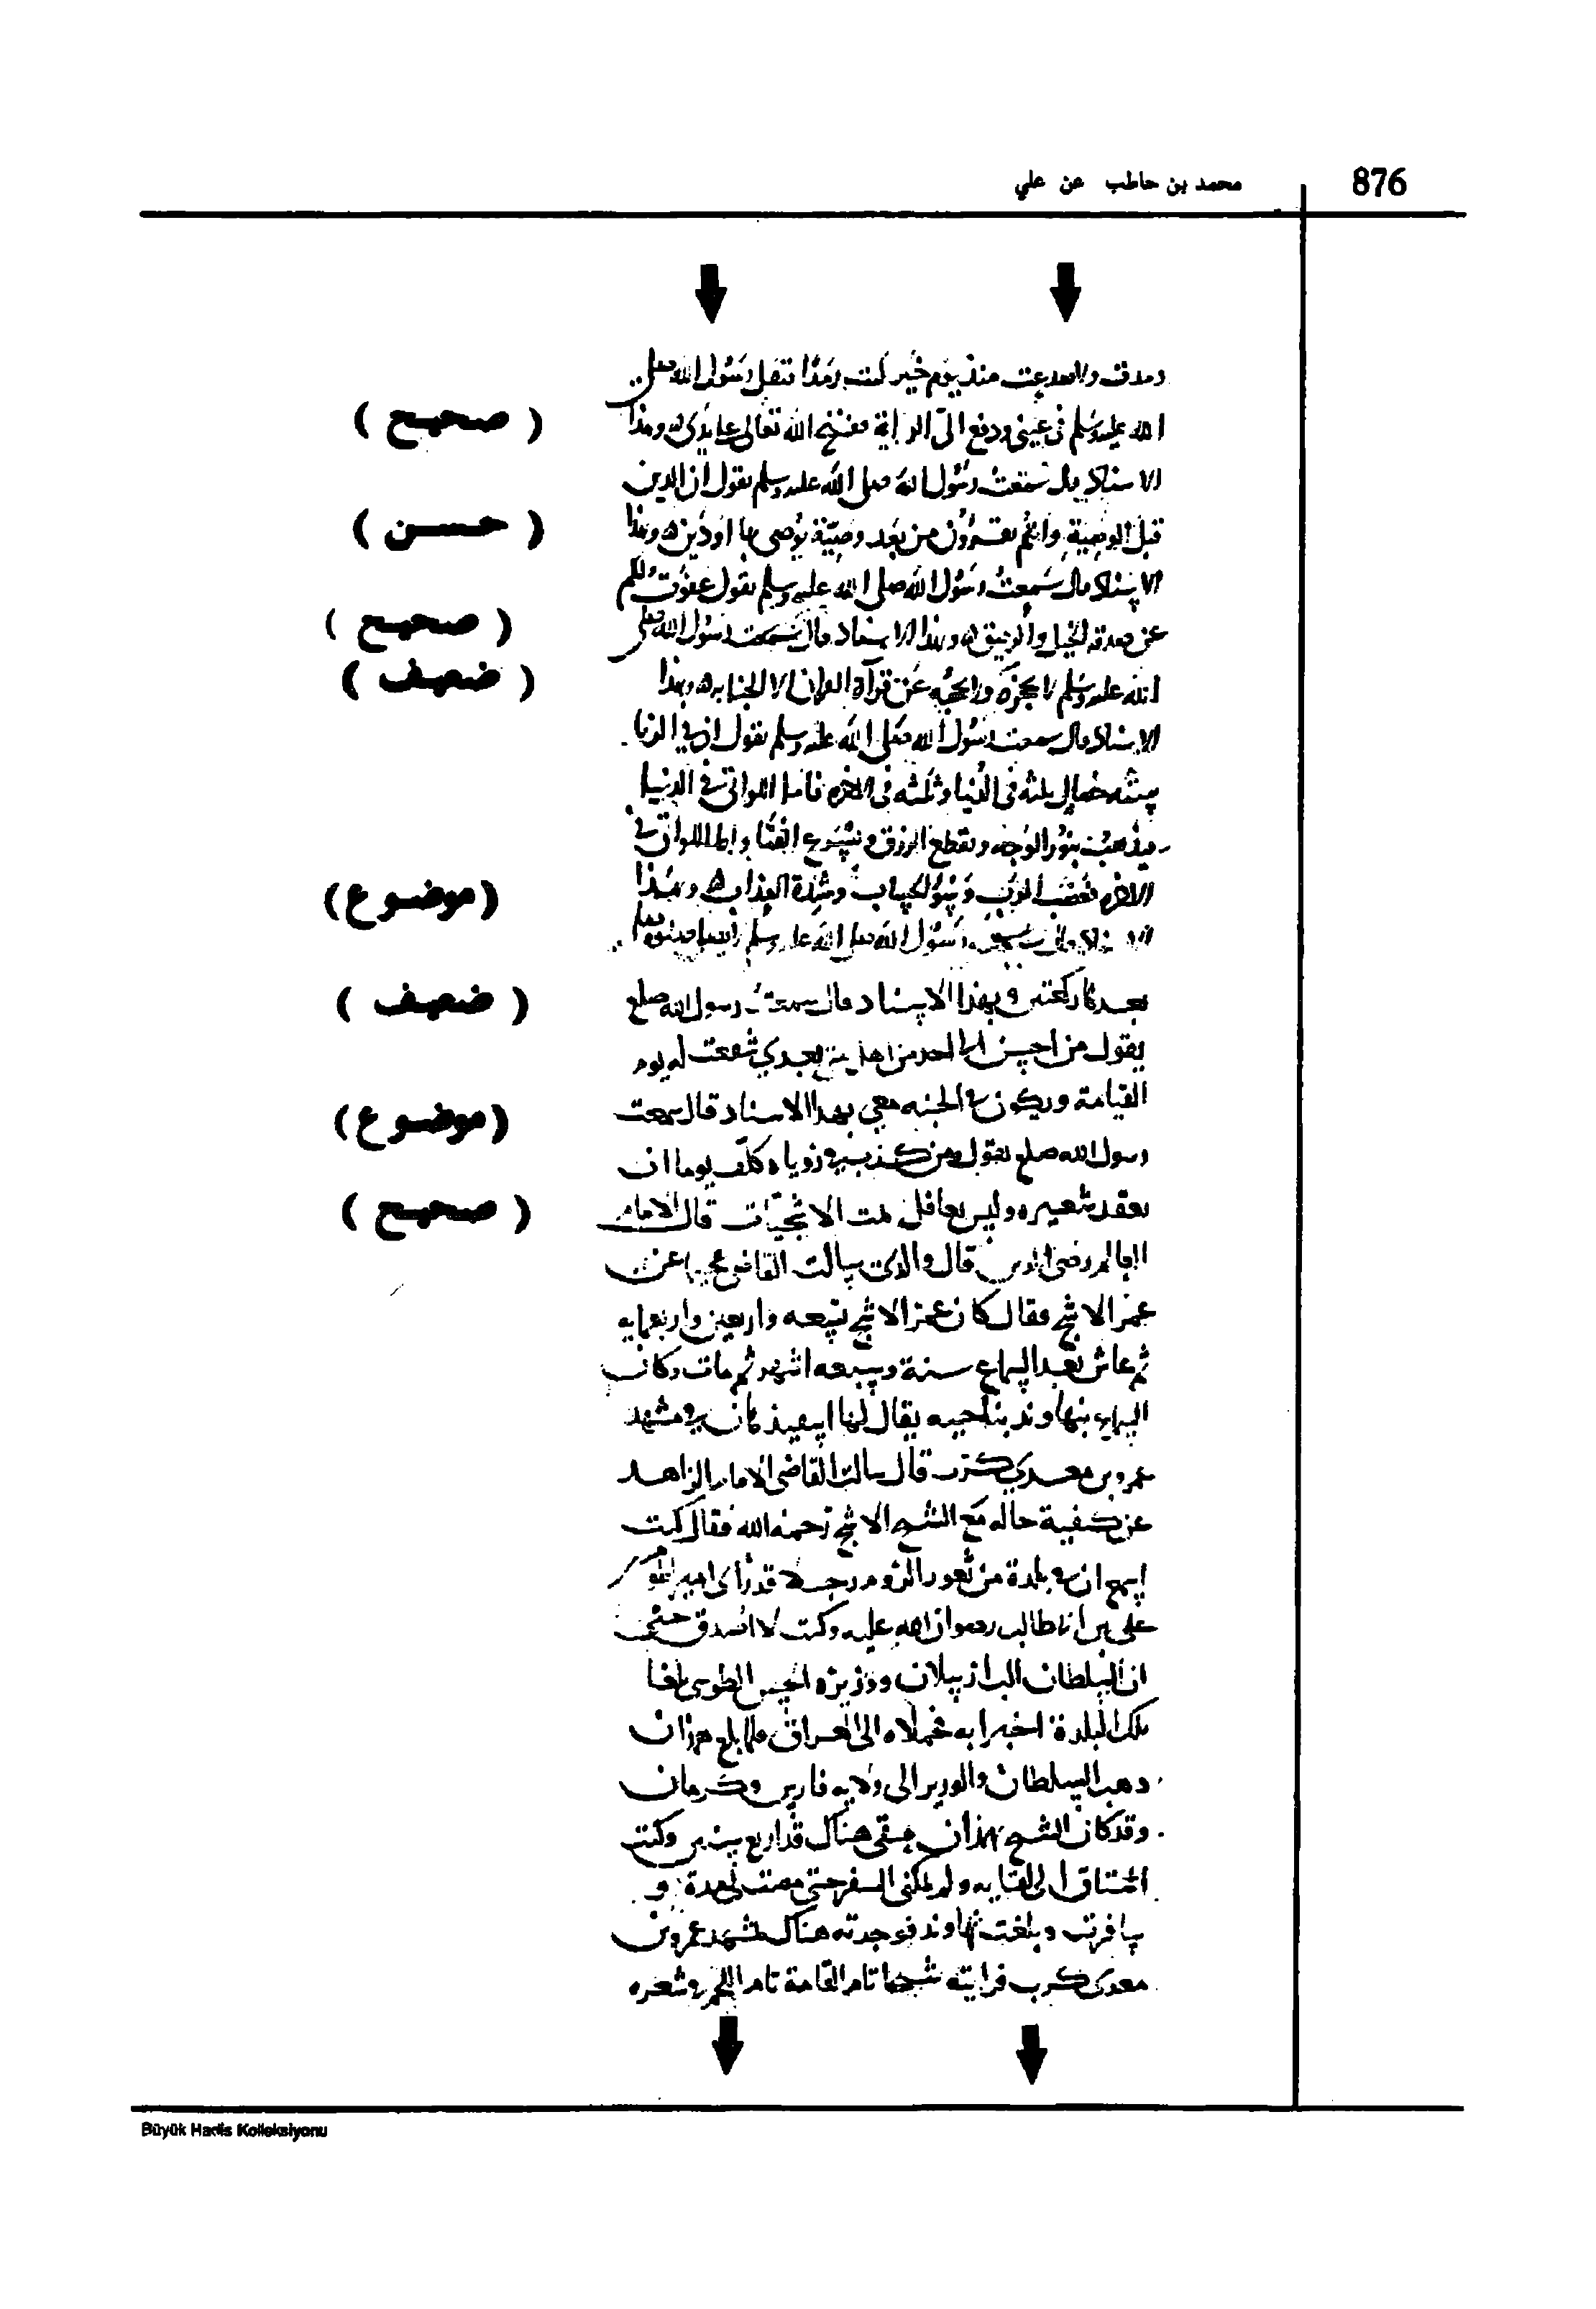 876
محمد بن حاطب عن علي
رمدت ولا صدعت منذ يوم خيبر كنت رمدًا فتفل رسول الله صلى
الله عليه وسلم في عيني ودفع الي الراية ففتح الله تعالى على يدي وبهذا
( صحيح )
الاسناد قال سمعت رسول الله صلى الله عليه وسلم يقول ان الدين
قبل الوصية وانتم تقرؤون من بعد وصية يوصي بها او دين وبهذا
( حسن )
الاسناد قال سمعت رسول الله صلى الله عليه وسلم يقول عفوت لكم
عن صدقة الخيل والرقيق وبهذا الاسناد قال سمعت رسول الله صلى
( صحيح )
الله عليه وسلم لا يحجزه ولا يحجبه عن قرآة القران الا الجنابه وبهذا
( ضعيف )
الاسناد قال سمعت رسول الله صلى الله عليه وسلم يقول ان في الزنا
ستة خصال ثلثه في الدنيا وثلثه في الاخره فاما اللواتي في الدنيا
فيذهب بنور الوجه ويقطع الرزق ويسرع الفنا واما اللواتي في
الاخره فغضب الرب وسوء الحساب وشدة العذاب وبهذا
(موضوع)
الاسناد قال سمعت رسول الله صلى الله عليه وسلم
بعدها ركعتين وبهذا الاسناد قال سمعت رسول الله صلع
( ضعيف )
يقول من احسن الى احد من اهل بيتي بعدي شفعت له يوم
القيامة ويكون في الجنه معي بهذا الاسناد قال سمعت
(موضوع)
رسول الله صلع يقول من كذب في روياه كلف يوما ان
يعقد شعيره وليس بعاقل تمت الاشجيات قال الامام
( صحيح )
العالم رضي الدين قال والدي سالت القاضي عن
عمر الاشج فقال كان عمر الاشج تسعه واربعين واربعمايه
ثم عاش بعد السماع سنة وسبعه اشهر ثم مات وكان
السماع بنهاوند بناحيه يقال لها اسفيذهان في مشهد
عمرو بن معدي كرب قال سالت القاضي الامام الزاهد
عن كيفية حاله مع الشيخ الاشج رحمه الله فقال كنت
اسمع ان في بلدة من ثغور الروم رجلا قد راى امير المومنين
علي بن ابي طالب رضوان الله عليه وكنت لا اصدق حتى
ان السلطان الب ارسلان ووزيره الحسن الطوسي لما
ملك البلدة اخبرا به فحملاه الى العراق فلما بلغ همذان
دهب السلطان والوزير الى ولايه فارس وكرمان
وقد كان الشيخ بهمذان فبقي هناك قد اربع سنين وكنت
اشتاق الى لقايه ولم يمكنني السفر حتى مضت المدة و
سافرت وبلغت نهاوند فوجدته هناك بمشهد عمرو بن
معدي كرب فرايته شيخا تام القامة تام اللحم في شعره
Büyük Hadis Kolleksiyonu